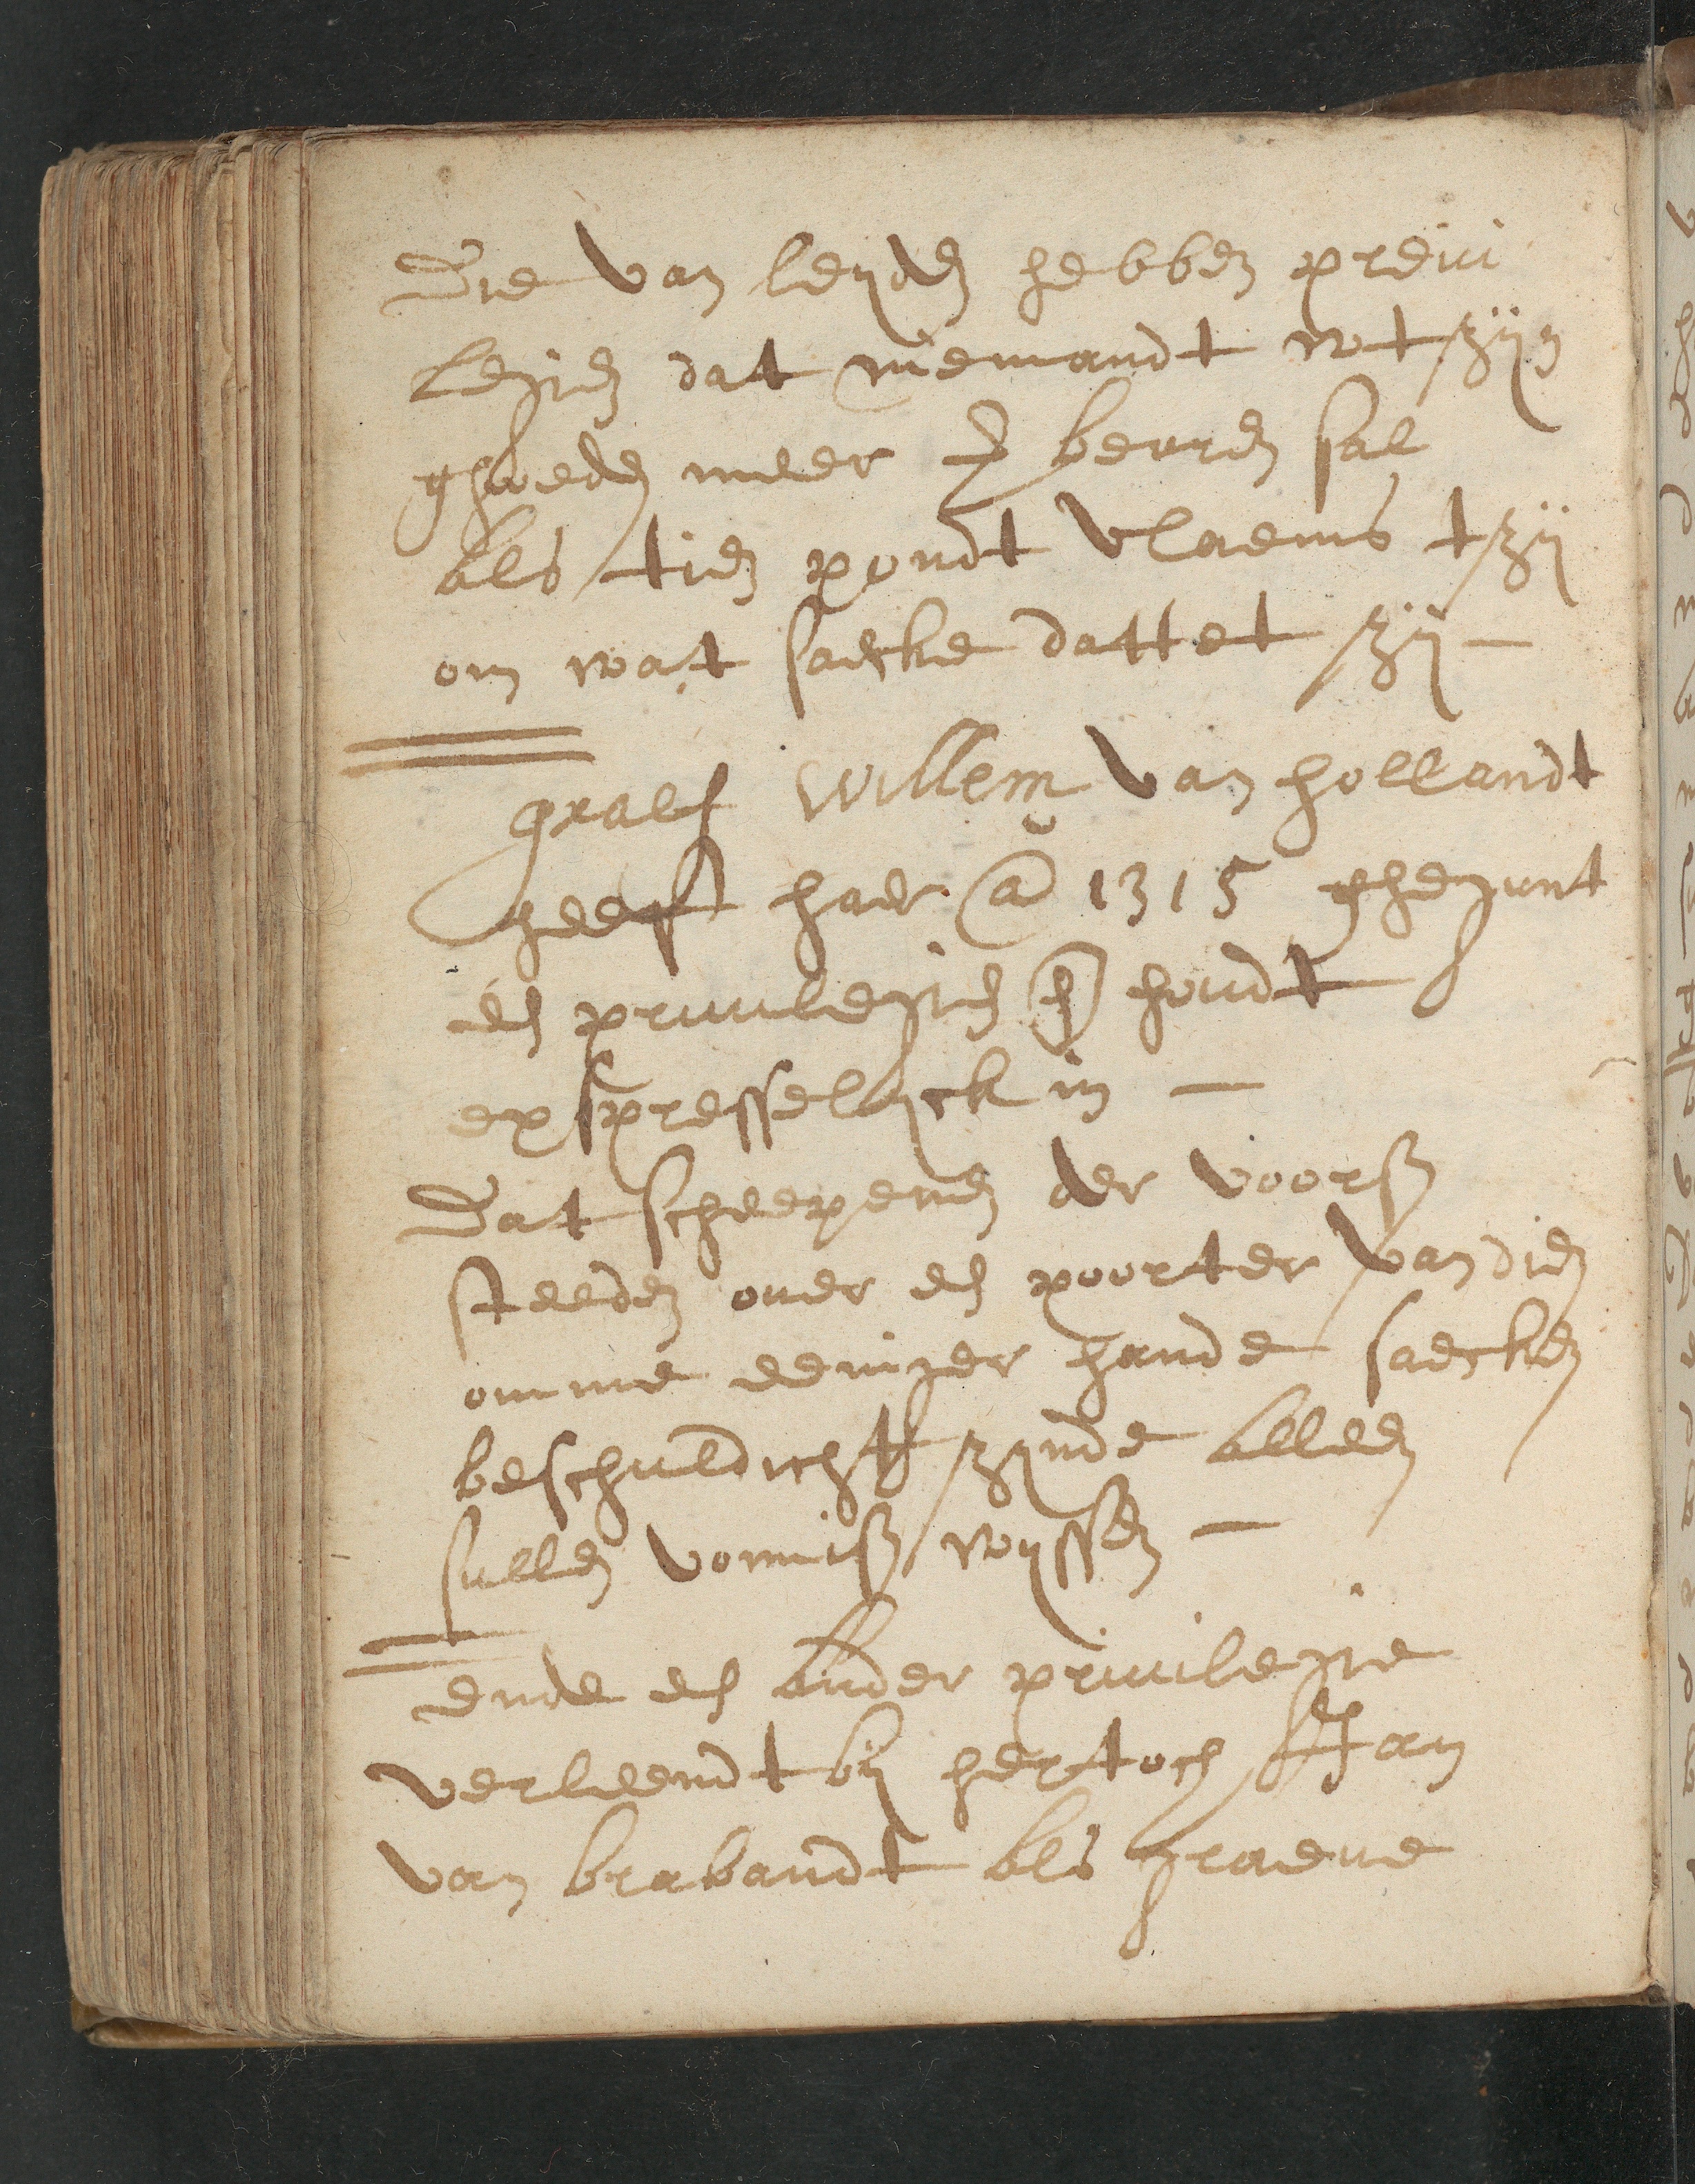 Die van leyden hebben preui
legien dat niemandt wt zijn
ghoeden meer verbeuren sal
als tien pondt vlaems tzij
om wat saecke dattet zij —
graef Willem van hollandt
heeft haer a° 1315 ghejunt
een preuilegien en houdt
expresselyck in —
Dat scheepenen der voors
steeden ouer een poorter van dien
omme eeniger hande saecken
beschuldicht zynde alleen
sullen vonnis wyssen —
ende een ander priuilegie
verleendt bij hertoch Jan
van brabandt als graeue